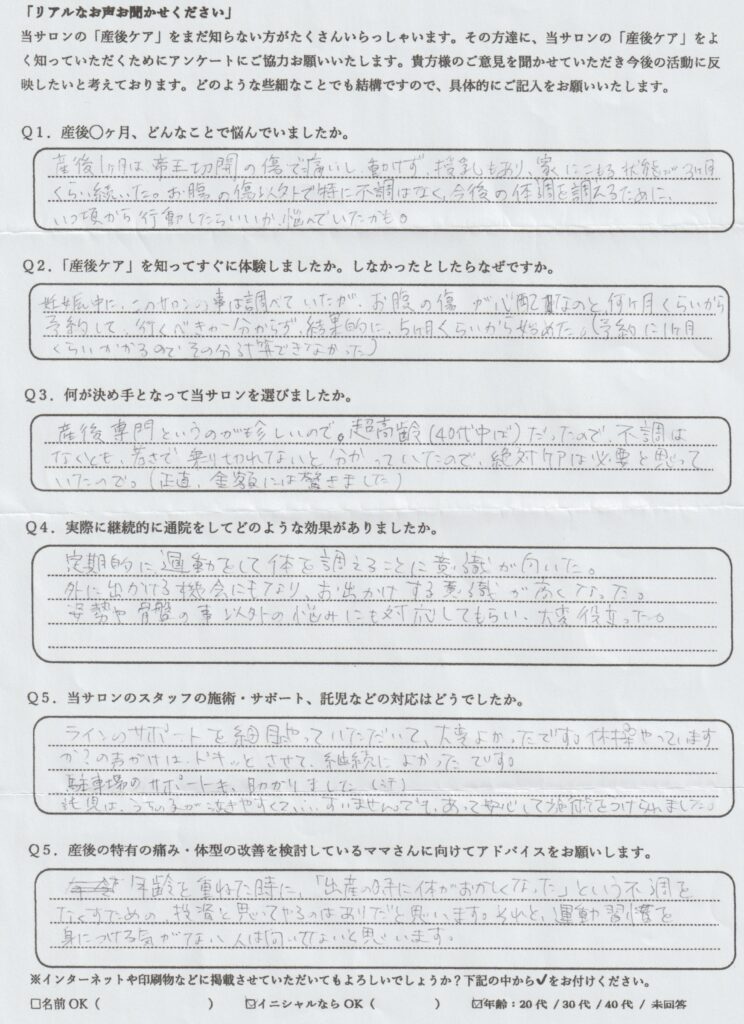 「リアルなお声お聞かせください」
当サロンの「産後ケア」をまだ知らない方がたくさんいらっしゃいます。その方達に、当サロンの「産後ケア」をよ
く知っていただくためにアンケートにご協力お願いいたします。貴方様のご意見を聞かせていただき今後の活動に反
映したいと考えております。どのような些細なことでも結構ですので、具体的にご記入をお願いいたします。
Q1．産後〇ヶ月、どんなことで悩んでいましたか。
産後1ヶ月は、帝王切開の傷で痛いし、動けず、授乳もあり、家にこもる状態が3ヶ月
くらい続いた。お腹の傷以外で特に不調はなく、今後の体調を調えるために、
いつ頃から行動したらいいか、悩んでいたかも。
Q2．「産後ケア」を知ってすぐに体験しましたか。しなかったとしたらなぜですか。
妊娠中に、このサロンの事は調べていたが、お腹の傷が心配なのと、何ヶ月くらいから
予約して、行くべきか分からず、結果的に、5ヶ月くらいから始めた。（予約に1ヶ月
くらいかかるのでその分計算できなかった）
Q3．何が決め手となって当サロンを選びましたか。
産後専門というのが珍しいので。超高齢（40代中ば）だったので、不調は
なくとも、若さで乗り切れないと分かっていたので、絶対ケアは必要と思って
いたので。（正直、金額には驚きました）
Q4．実際に継続的に通院をしてどのような効果がありましたか。
定期的に運動をして体を調えることに意識が向いた。
外に出かける機会にもなり、お出かけする意識が高くなった。
姿勢や骨盤の事以外の悩みにも対応してもらい、大変役立った。
Q5．当サロンのスタッフの施術・サポート、託児などの対応はどうでしたか。
ラインのサポートを細目やっていただいて、大変よかったです。体操やっています
か？の声がけは、ドキッとさせて、継続によかったです。
駐車場のサポートも、助かりました（汗）
託児は、うちの子が泣きやすくて、すいません でも、あって安心して施術をうけられました。
Q5．産後の特有の痛み・体型の改善を検討しているママさんに向けてアドバイスをお願いします。
年齢を重ねた時に、「出産の時に体がおかしくなった」という不調を
なくすための、投資と思ってやるのはありだと思います。それと、運動習慣を
身につける気がない人は向いてないと思います。
※インターネットや印刷物などに掲載させていただいてもよろしいでしょうか？下記の中から✔をお付けください。
□名前OK（　　　）　☑イニシャルならOK（　　　）　☑年齢：20代 / 30代 / 40代 / 未回答